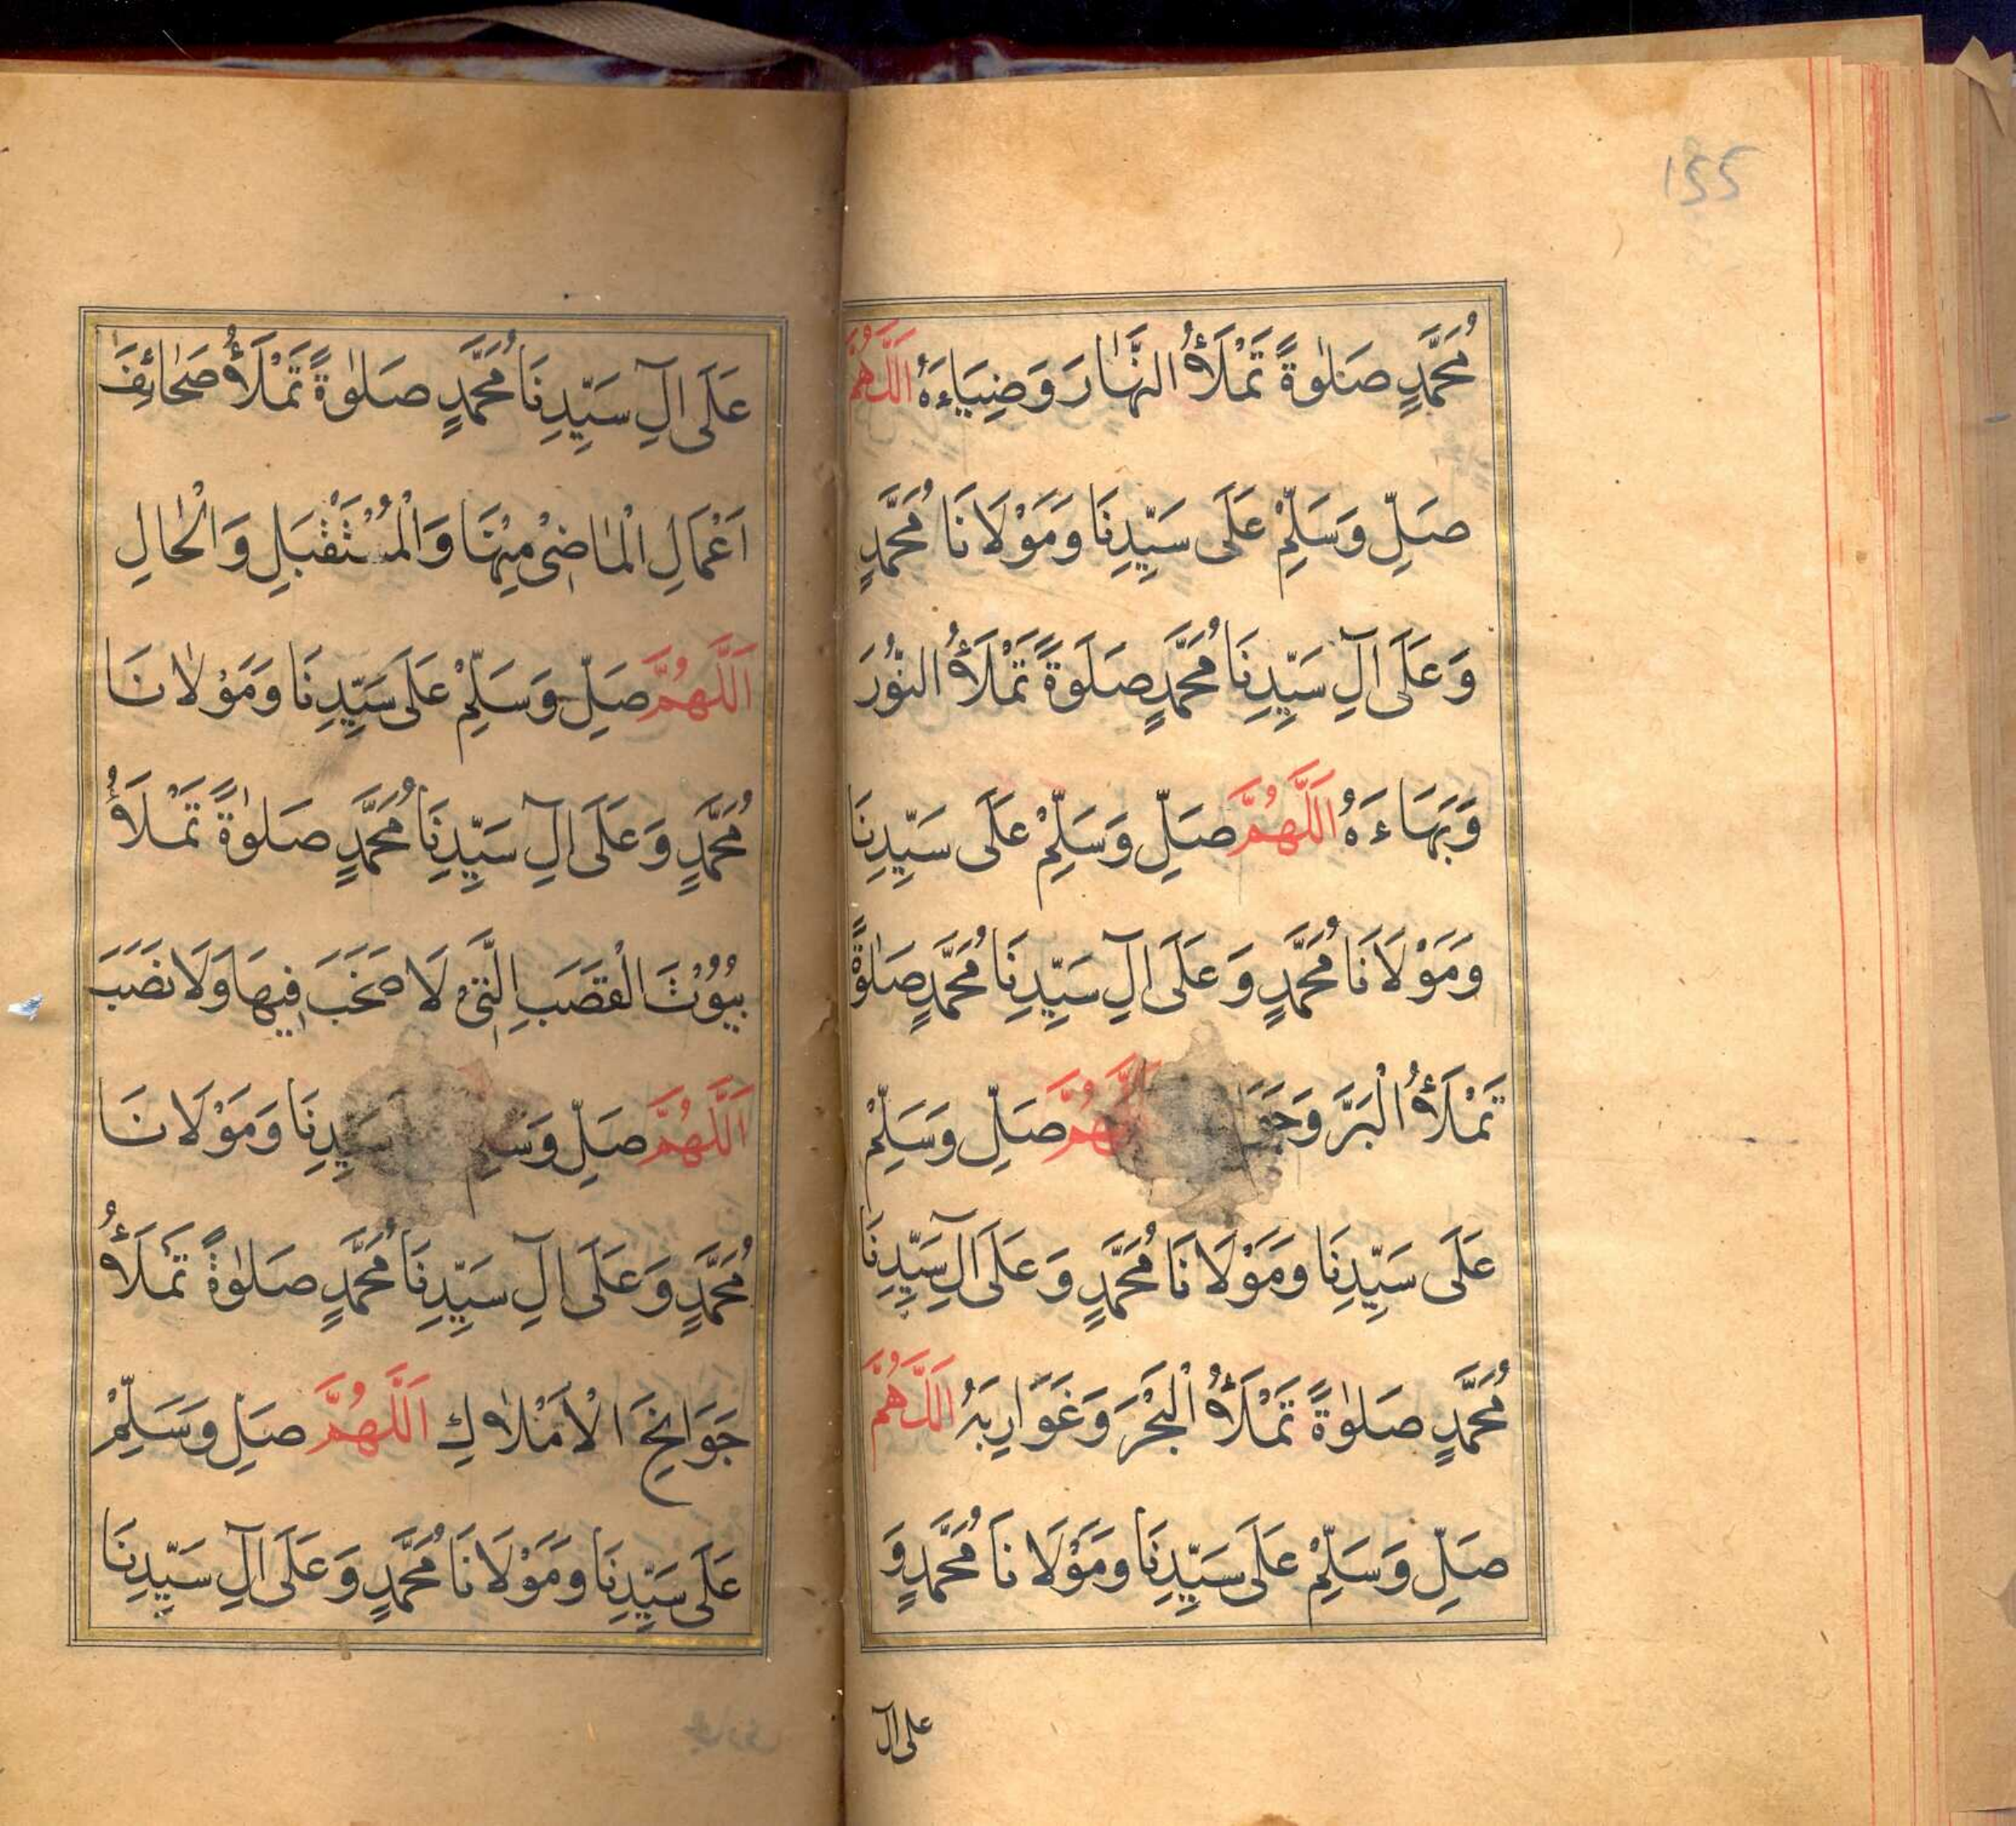 155
مُحَمَّدٍ صَلٰوةً تَمْلَأُ النَّهَارَ وَضِيَاءَهُ اَللّٰهُمَّ
صَلِّ وَسَلِّمْ عَلَى سَيِّدِنَا وَمَوْلَانَا مُحَمَّدٍ
وَعَلَى اٰلِ سَيِّدِنَا مُحَمَّدٍ صَلَوةً تَمْلَأُ النُّورَ
وَبَهَاءَهُ اَللّٰهُمَّ صَلِّ وَسَلِّمْ عَلَى سَيِّدِنَا
وَمَوْلَانَا مُحَمَّدٍ وَعَلَى اٰلِ سَيِّدِنَا مُحَمَّدٍ صَلٰوةً
تَمْلَأُ الْبَرَّ اَللّٰهُمَّ صَلِّ وَسَلِّمْ
عَلَى سَيِّدِنَا وَمَوْلَانَا مُحَمَّدٍ وَعَلَى اٰلِ سَيِّدِنَا
مُحَمَّدٍ صَلٰوةً تَمْلَأُ الْبَحْرَ وَغَوَارِبَهُ اَللّٰهُمَّ
صَلِّ وَسَلِّمْ عَلَى سَيِّدِنَا وَمَوْلَانَا مُحَمَّدٍ وَ
على آل
عَلَى اٰلِ سَيِّدِنَا مُحَمَّدٍ صَلٰوةً تَمْلَأُ صَحَائِفَ
اَعْمَالِ الْمَاضِىْ مِنْهَا وَالْمُسْتَقْبَلِ وَالْحَالِ
اَللّٰهُمَّ صَلِّ وَسَلِّمْ عَلَى سَيِّدِنَا وَمَوْلَانَا
مُحَمَّدٍ وَعَلَى اٰلِ سَيِّدِنَا مُحَمَّدٍ صَلٰوةً تَمْلَأُ
بُيُوْتَ الْقَصَبِ الَّتِىْ لَا صَخَبَ فِيهَا وَلَا نَصَبَ
اَللّٰهُمَّ صَلِّ وَسَلِّمْ سَيِّدِنَا وَمَوْلَانَا
مُحَمَّدٍ وَعَلَى اٰلِ سَيِّدِنَا مُحَمَّدٍ صَلٰوةً تَمْلَأُ
جَوَانِحَ الْاَمْلَاكِ اَللّٰهُمَّ صَلِّ وَسَلِّمْ
عَلَى سَيِّدِنَا وَمَوْلَانَا مُحَمَّدٍ وَعَلَى اٰلِ سَيِّدِنَا